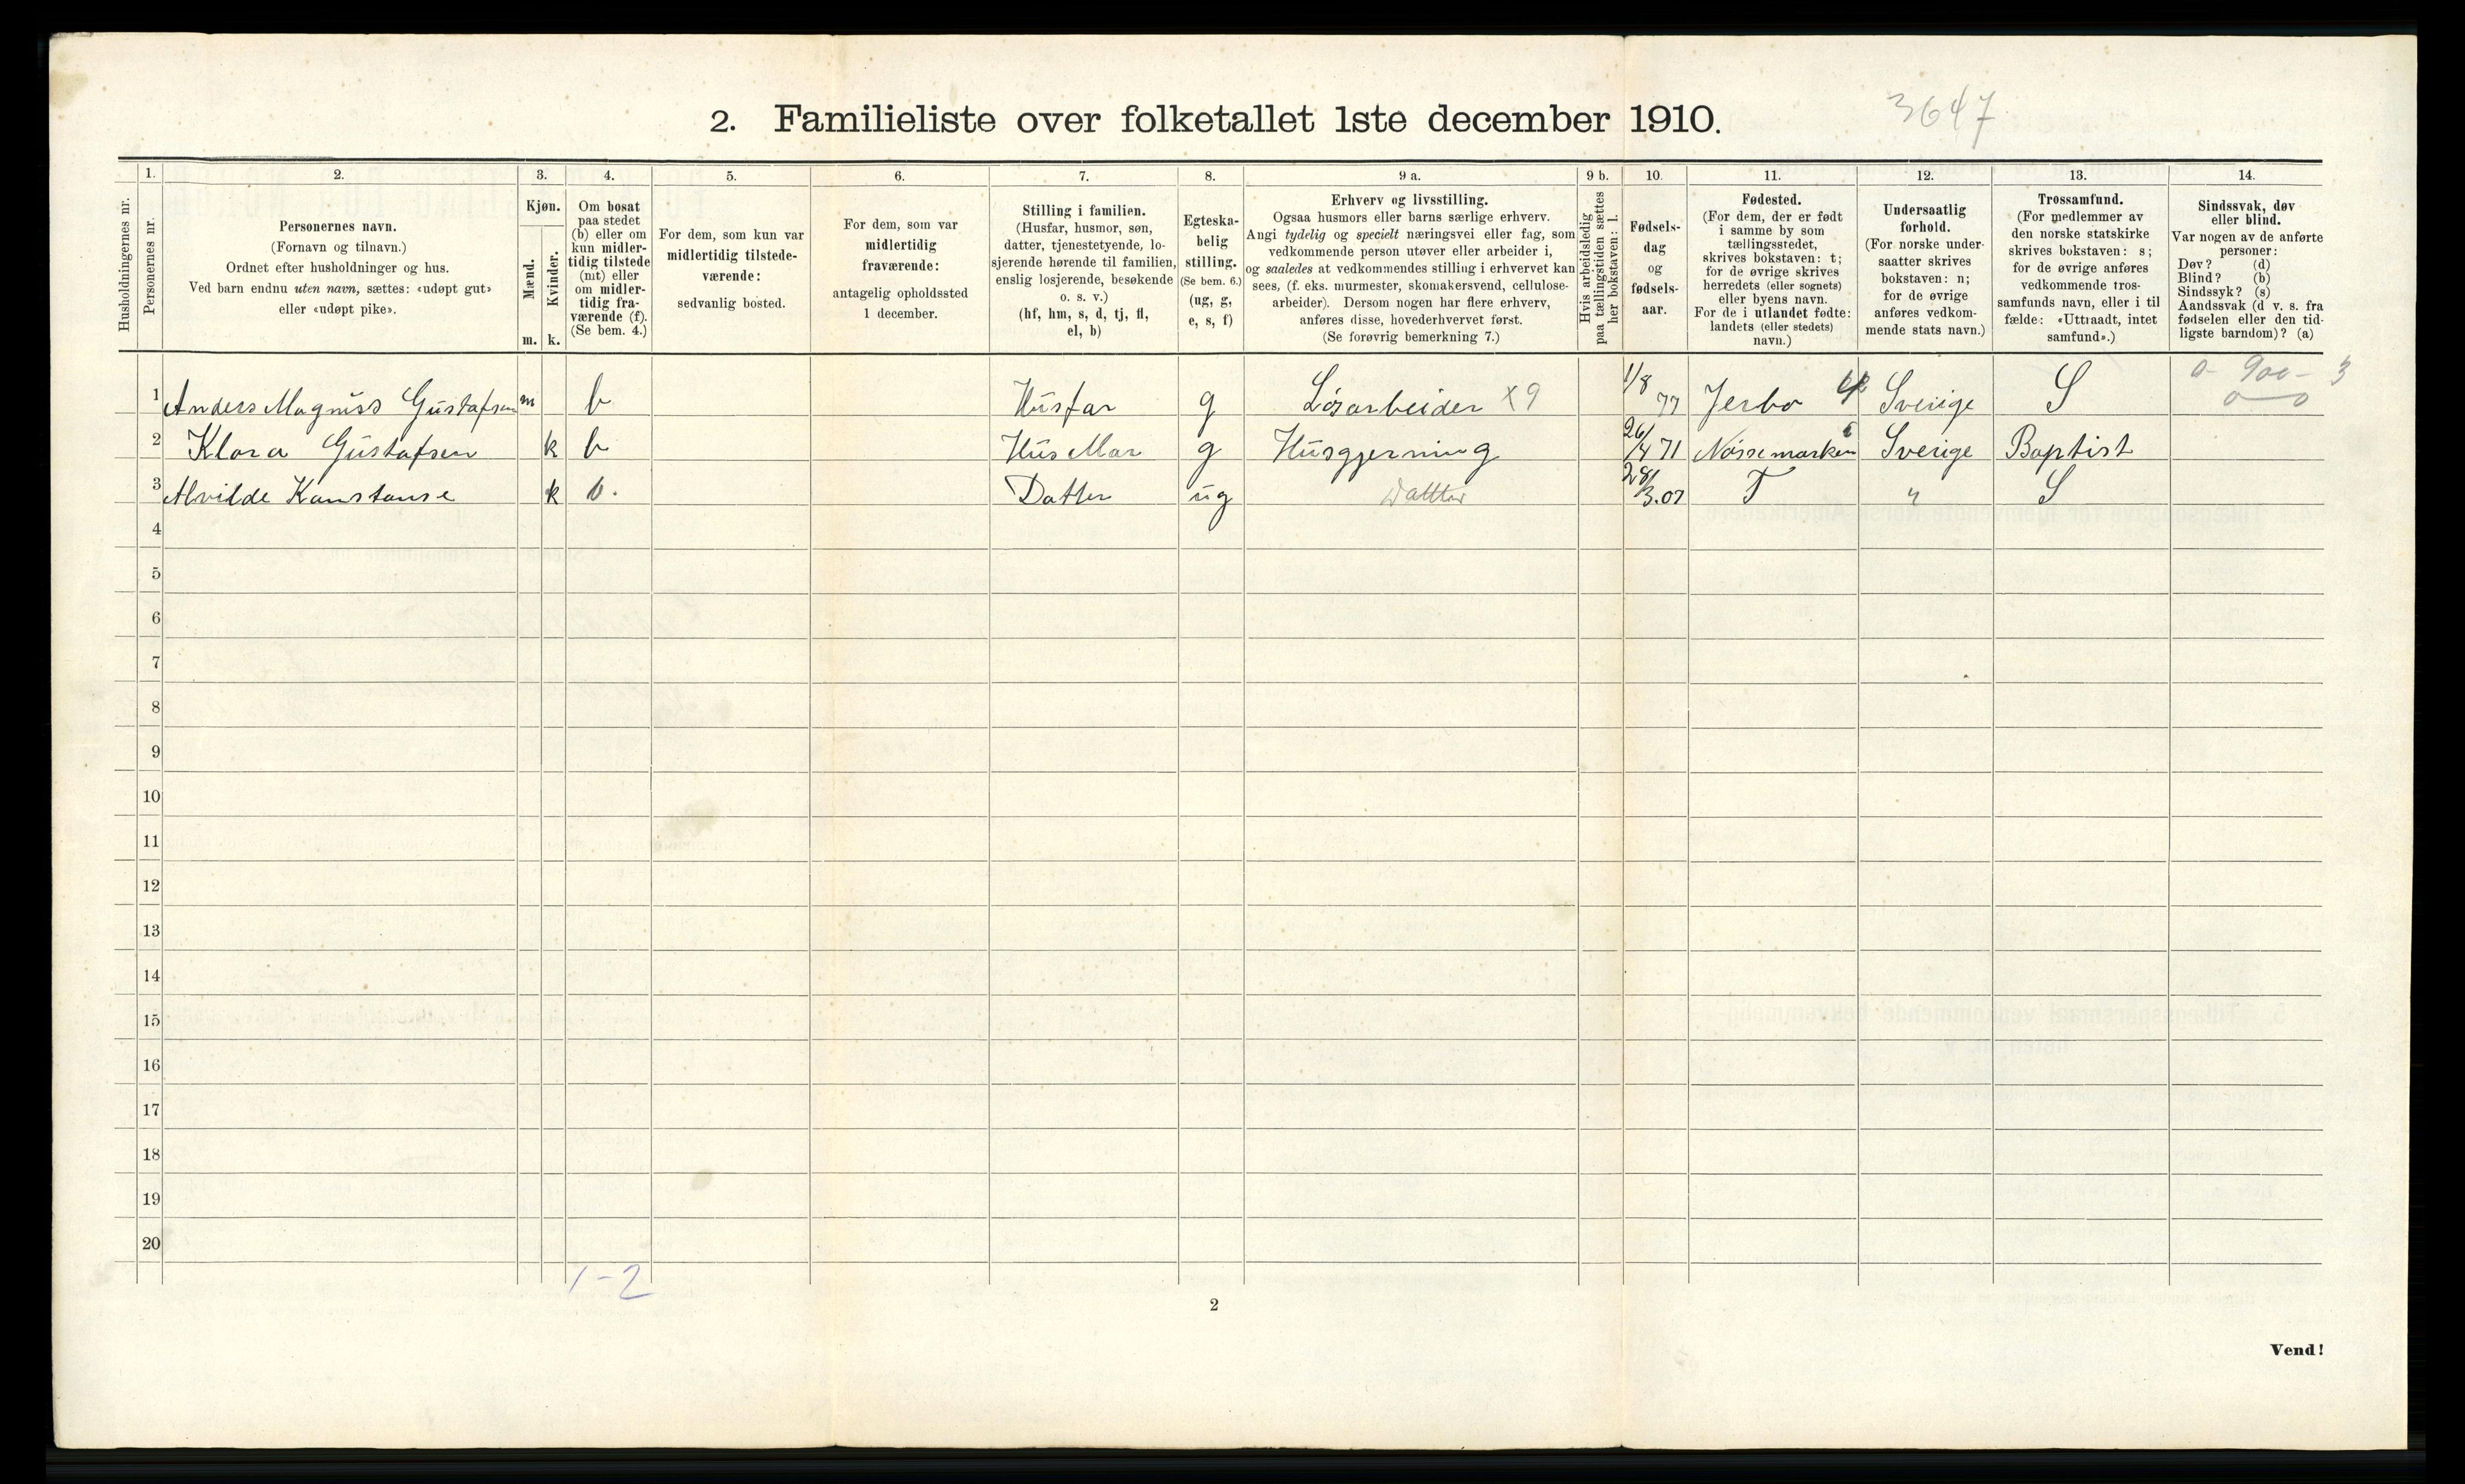 2. Familieliste over folketallet 1ste december 1910.
3647
Husholdningernes nr.
1.
Personernes nr.
2.
Personernes navn.
(Fornavn og tilnavn.)
Ordnet efter husholdninger og hus.
Ved barn endnu uten navn, sættes: «udøpt gut»
eller «udøpt pike».
3.
Kjøn.
Mænd.
Kvinder.
m. k.
4.
Om bosat
paa stedet
(b) eller om
kun midler-
tidig tilstede
(mt) eller
om midler-
tidig fra-
værende (f).
(Se bem. 4.)
5.
For dem, som kun var
midlertidig tilstede-
værende:
sedvanlig bosted.
6.
For dem, som var
midlertidig
fraværende:
antagelig opholdssted
1 december.
7.
Stilling i familien.
(Husfar, husmor, søn,
datter, tjenestetyende, lo-
sjerende hørende til familien,
enslig losjerende, besøkende
o. s. v.)
(hf, hm, s, d, tj, fl,
el, b)
8.
Egteska-
belig
stilling.
(Se bem. 6.)
(ug, g,
e, s, f)
9 a.
Erhverv og livsstilling.
Ogsaa husmors eller barns særlige erhverv.
Angi tydelig og specielt næringsvei eller fag, som
vedkommende person utøver eller arbeider i,
og saaledes at vedkommendes stilling i erhvervet kan
sees, (f. eks. murmester, skomakersvend, cellulose-
arbeider). Dersom nogen har flere erhverv,
anføres disse, hovederhvervet først.
(Se forøvrig bemerkning 7.)
9 b.
Hvis arbeidsledig
paa tællingstiden sættes
her bokstaven: l.
10.
Fødsels-
dag
og
fødsels-
aar.
11.
Fødested.
(For dem, der er født
i samme by som
tællingsstedet,
skrives bokstaven: t;
for de øvrige skrives
herredets (eller sognets)
eller byens navn.
For de i utlandet fødte:
landets (eller stedets)
navn.)
12.
Undersaatlig
forhold.
(For norske under-
saatter skrives
bokstaven: n;
for de øvrige
anføres vedkom-
mende stats navn.)
13.
Trossamfund.
(For medlemmer av
den norske statskirke
skrives bokstaven: s;
for de øvrige anføres
vedkommende tros-
samfunds navn, eller i til
fælde: «Uttraadt, intet
samfund».)
14.
Sindssvak, døv
eller blind.
Var nogen av de anførte
personer:
Døv? (d)
Blind? (b)
Sindssyk? (s)
Aandssvak (d v. s. fra
fødselen eller den tid-
ligste barndom)? (a)
0 - 900 - 3
0 0
1 Anders Magnus Gustafsen m b Husfar g Løsarbeider X9 1/8 77 Jerbo Sverige S
2 Klara Gustafsen k b Hus Mor g Husgjerning 26/4 71 Nössemarken Sverige Baptist
3 Alvilde Konstanse k b. Datter ug Datter 28/3.07 T " S
4
5
6
7
8
9
10
11
12
13
14
15
16
17
18
19
20
1-2
2
Vend!